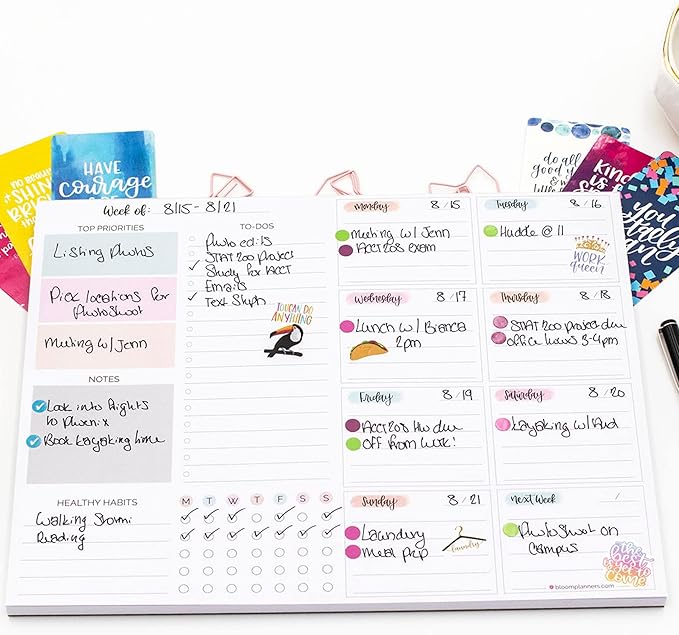 HAVE
courage
Week of: 8/15 - 8/21
TOP PRIORITIES
Listing Photos
Pick locations for
Photoshoot
Meeting w/ Jenn
NOTES
Look into flights
to Phoenix
Book kayaking time
HEALTHY HABITS
Walking Stormi
Reading
M T W T F S S
TO-DOS
Photo edits
STAT 200 Project
Study for ACCT
Emails
Text Steph
TOUCAN DO
ANYTHING
monday 8/15
Meeting w/ Jenn
ACCT 208 exam
Tuesday 8/16
Huddle @ 11
WORK
queen
Wednesday 8/17
Lunch w/ Bianca
2pm
Thursday 8/18
STAT 200 project due
office hours 3-4pm
Friday 8/19
ACCT 208 HW due
OFF from work!
Saturday 8/20
Kayaking w/
Sunday 8/21
Laundry
Meal prep
laundry
next week /
Photoshoot on
Campus
the
best
is yet to
come
bloomplanners.com
do all
good you
can
& with
Kind
is
you
totally
can